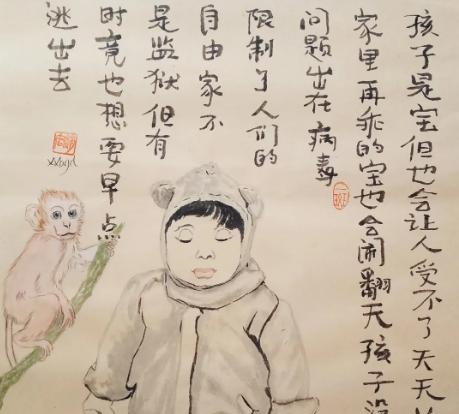 孩子是宝但也会让人受不了天天
家里再乖的宝也会闹翻天孩子没
问题出在病毒
限制了人们的
自由家不
是监狱但有
时竟也想要早点
逃出去